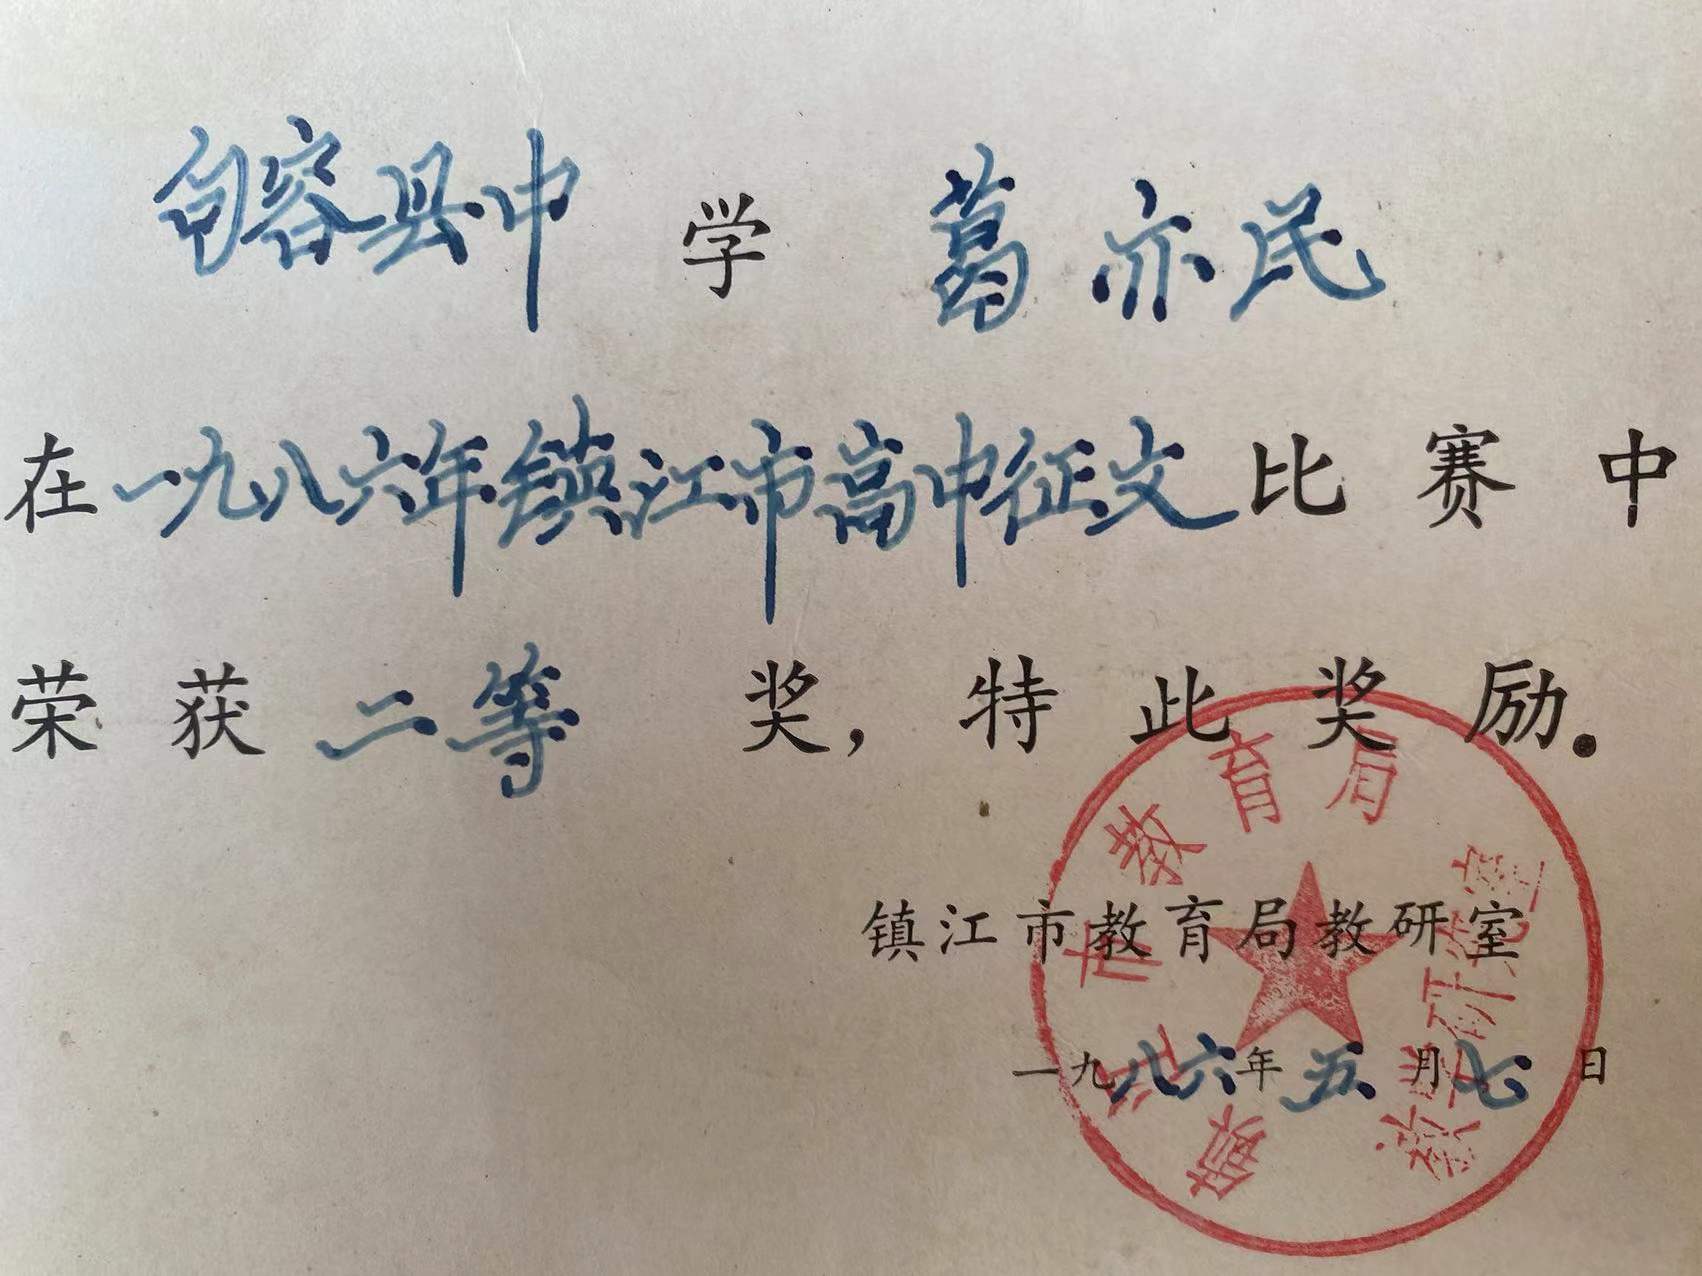 句容县中学 葛亦民
在一九八六年镇江市高中征文比赛中
荣获二等奖，特此奖励.
镇江市教育局教研室
一九八六年五月七日
镇江市教育局教学研究室